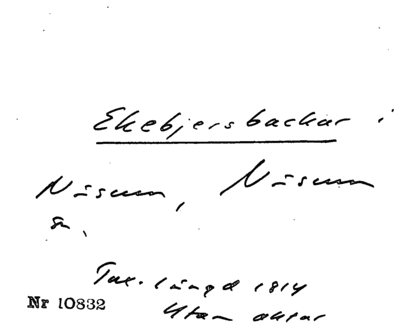 Ekebjersbackar i
Näsum, Näsum
sn.
Tax. längd 1814
Utan aktar
Nr 10832